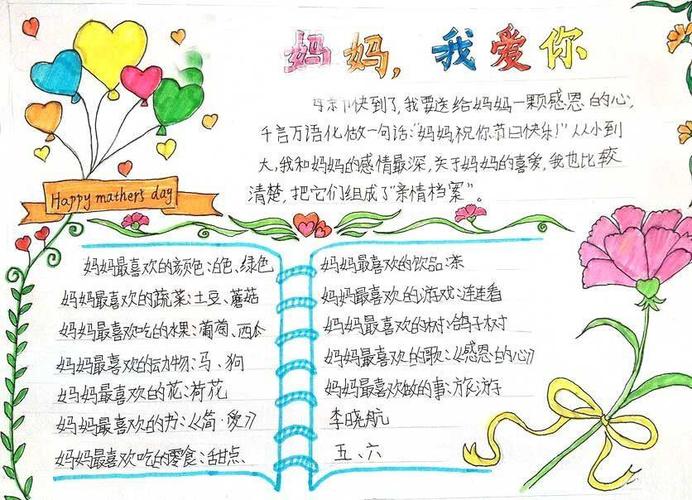 妈妈，我爱你
母亲节快到了，我要送给妈妈一颗感恩的心，
千言万语化做一句话：“妈妈祝你节日快乐！”从小到
大，我和妈妈的感情最深，关于妈妈的喜爱，我也比较
清楚，把它们组成了“亲情档案”。
Happy mather's day
妈妈最喜欢的颜色：白色、绿色
妈妈最喜欢的蔬菜：土豆、蘑菇
妈妈最喜欢吃的水果：葡萄、西瓜
妈妈最喜欢的动物：马、狗
妈妈最喜欢的花：荷花
妈妈最喜欢的书：《简·爱》
妈妈最喜欢吃的零食：甜点、
妈妈最喜欢的饮品：茶
妈妈最喜欢的游戏：连连看
妈妈最喜欢的树：鸽子树
妈妈最喜欢的歌：《感恩的心》
妈妈最喜欢做的事：旅游
李晓航
五、六